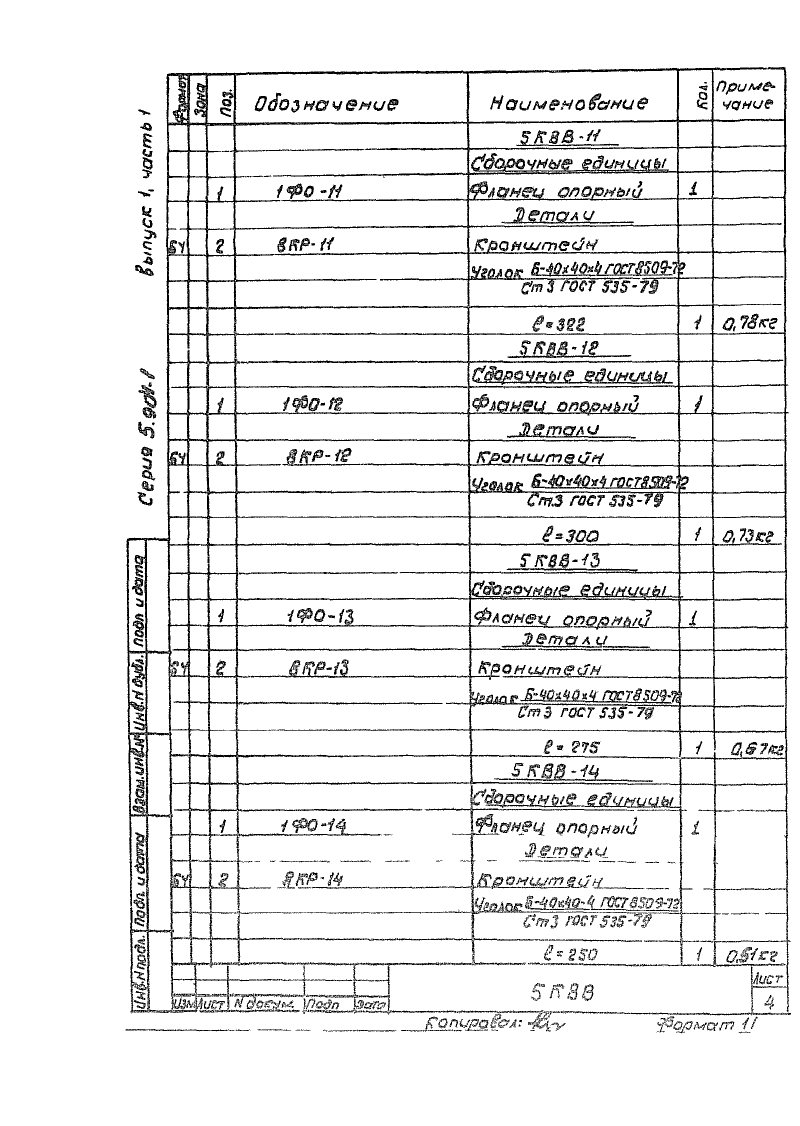 Серия 5.904-1 выпуск 1, часть 1
Формат Зона Поз. Обозначение Наименование Кол. Приме-
чание
5КВВ-11
Сборочные единицы
1 1ФО-11 Фланец опорный 1
Детали
БЧ 2 8КР-11 Кронштейн
Уголок Б-40х40х4 ГОСТ 8509-72
Ст3 ГОСТ 535-79
ℓ=322 1 0,78кг
5КВВ-12
Сборочные единицы
1 1ФО-12 Фланец опорный 1
Детали
БЧ 2 8КР-12 Кронштейн
Уголок Б-40х40х4 ГОСТ 8509-72
Ст.3 ГОСТ 535-79
ℓ=300 1 0,73кг
5КВВ-13
Сборочные единицы
1 1ФО-13 Фланец опорный 1
Детали
БЧ 2 8КР-13 Кронштейн
Уголок Б-40х40х4 ГОСТ 8509-72
Ст3 ГОСТ 535-79
ℓ=275 1 0,67кг
5КВВ-14
Сборочные единицы
1 1ФО-14 Фланец опорный 1
Детали
БЧ 2 8КР-14 Кронштейн
Уголок Б-40х40-4 ГОСТ 8509-72
Ст3 ГОСТ 535-79
ℓ=250 1 0,51кг
Инв.N подл. Подп. и дата Взам.инв.N Инв.N дубл. Подп. и дата
Изм Лист N докум. Подп Дата
5КВВ
Лист
4
Копировал: Формат 11